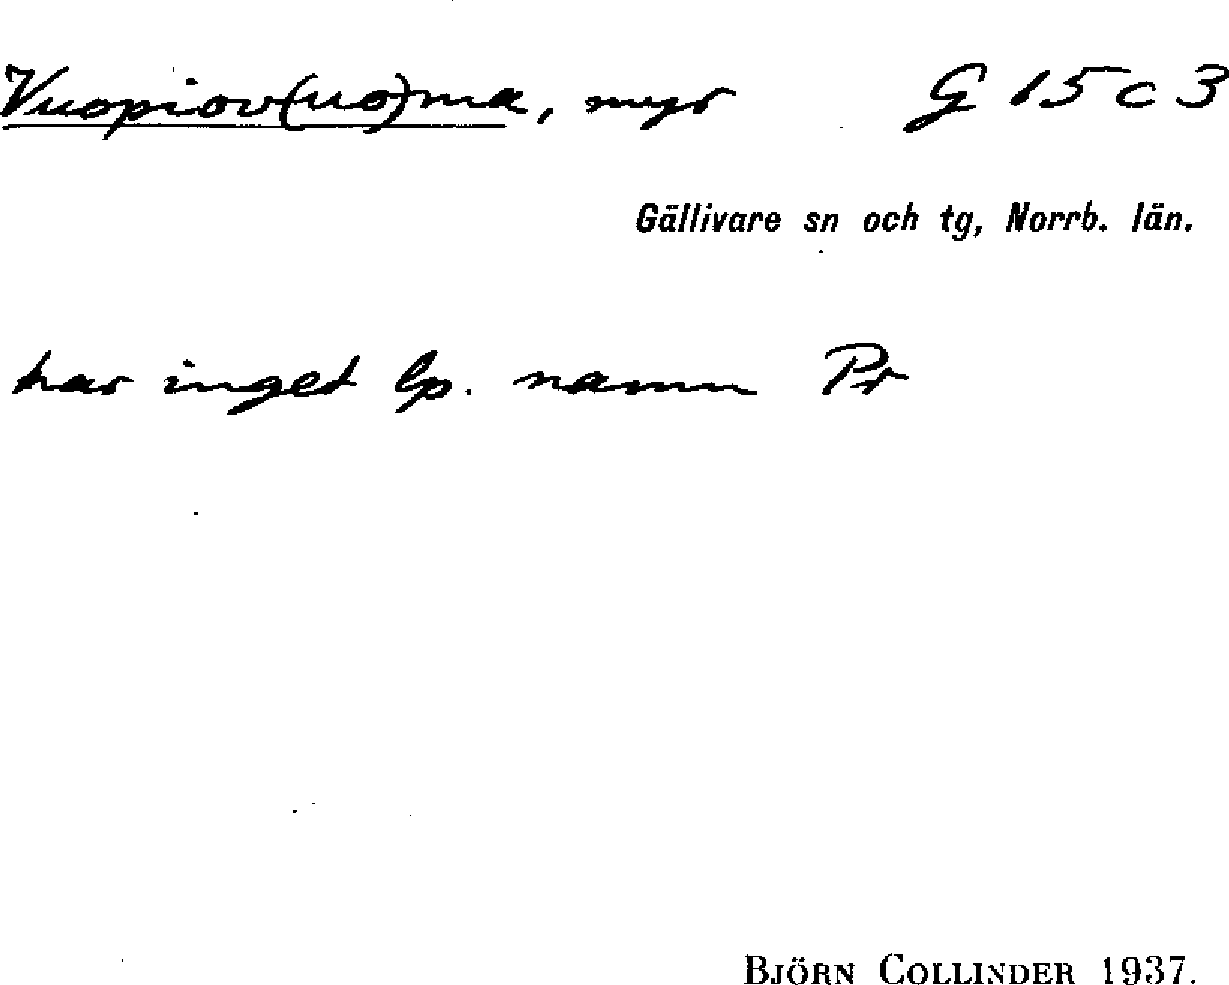 Vuopiov(uo)ma, myr G 15 c 3
Gällivare sn och tg, Norrb. län.
har inget lp. namn Pr
BJÖRN COLLINDER 1937.